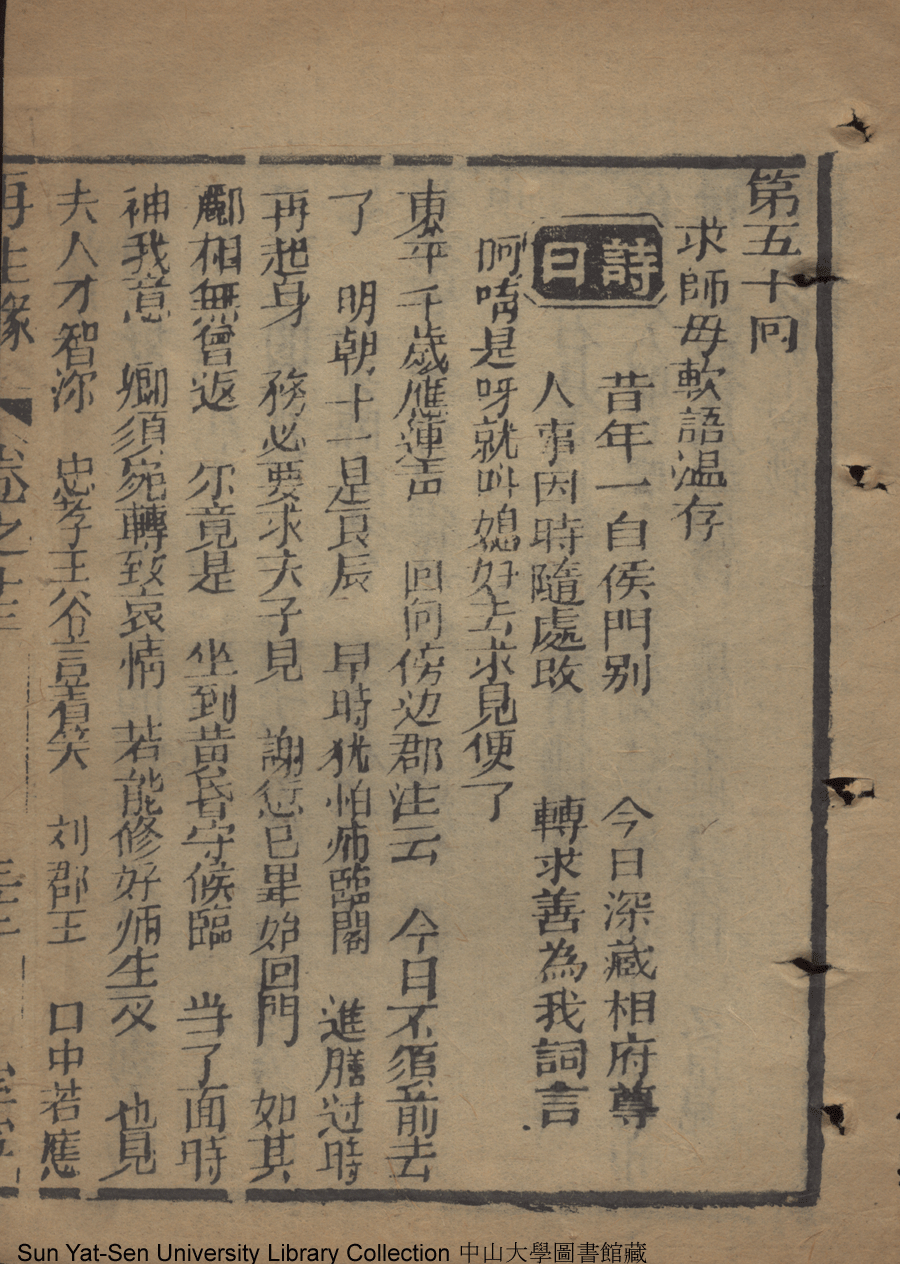 第五十囘
求師母軟語温存
詩曰
昔年一自侯門别 今日深藏相府尊
人事因時隨處改 轉求善為我詞言
啊唷是呀就叫媳妇去求見便了
東平千歲應連声 回向傍边郡主云 今日不須前去
了 明朝十一是良辰 早時犹怕師臨閣 進膳过時
再起身 務必要求夫子見 謝愆已畢始回門 如其
酈相無曾返 尔竟是 坐到黄昏守候臨 当了面時
神我意 卿須宛轉致哀情 若能修好師生义 也見
夫人才智深 忠孝王爷言着笑 刘郡王 口中若應
再生緣 卷之十三
Sun Yat-Sen University Library Collection 中山大學圖書館藏